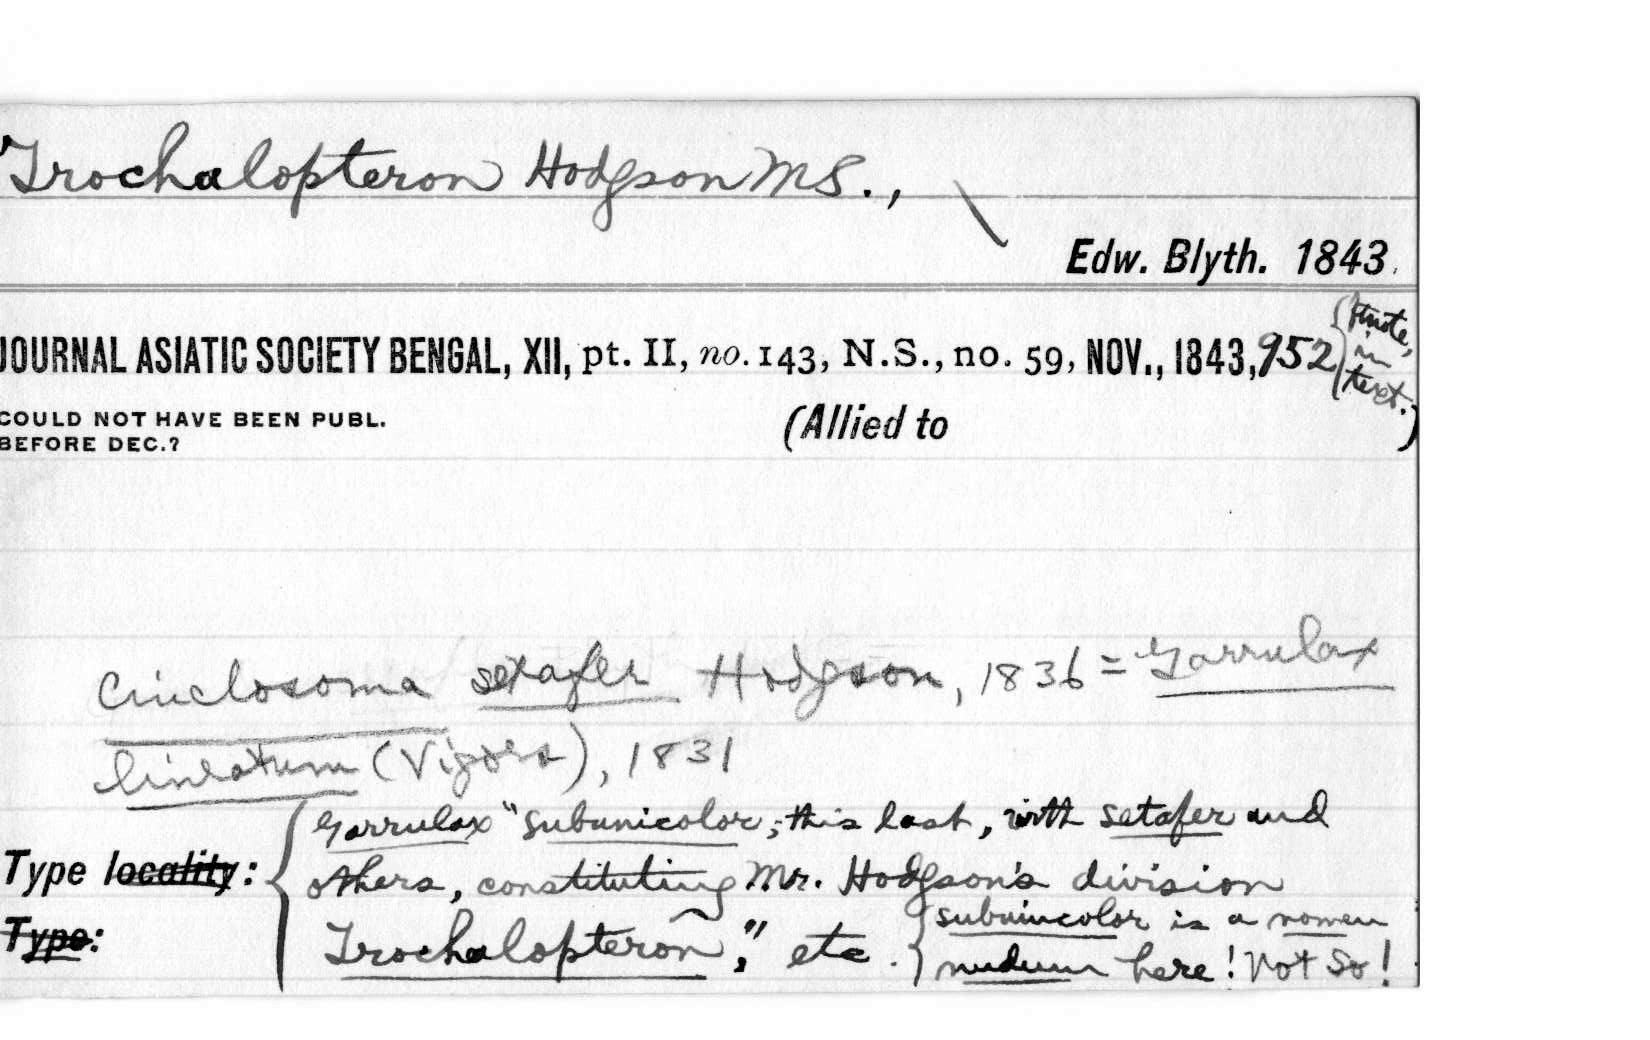 Trochalopteron Hodgson MS.,
Edw. Blyth. 1843.
JOURNAL ASIATIC SOCIETY BENGAL, XII, pt. II, no. 143, N.S., no. 59, NOV., 1843, 952 {ftnote, in text.
COULD NOT HAVE BEEN PUBL.
BEFORE DEC.?
(Allied to )
Cinclosoma setafer Hodgson, 1836 = Garrulax
lineatum (Vigors), 1831
Garrulax "subunicolor; this last, with setafer and
Type locality: { others, constituting Mr. Hodgson's division
Type: Trochalopteron," etc. {subunicolor is a nomen
nudum here! Not So!